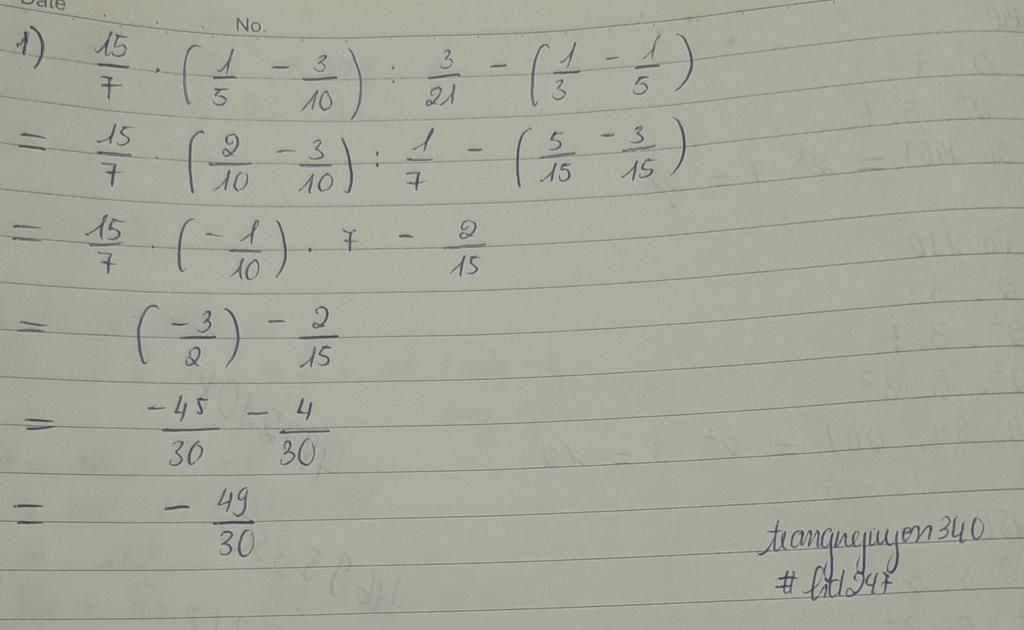 Date
No.
1) 15/7 . (1/5 - 3/10) : 3/21 - (1/3 - 1/5)
= 15/7 . (2/10 - 3/10) : 1/7 - (5/15 - 3/15)
= 15/7 . (-1/10) . 7 - 2/15
= (-3/2) - 2/15
= -45/30 - 4/30
= - 49/30
trangnguyen340